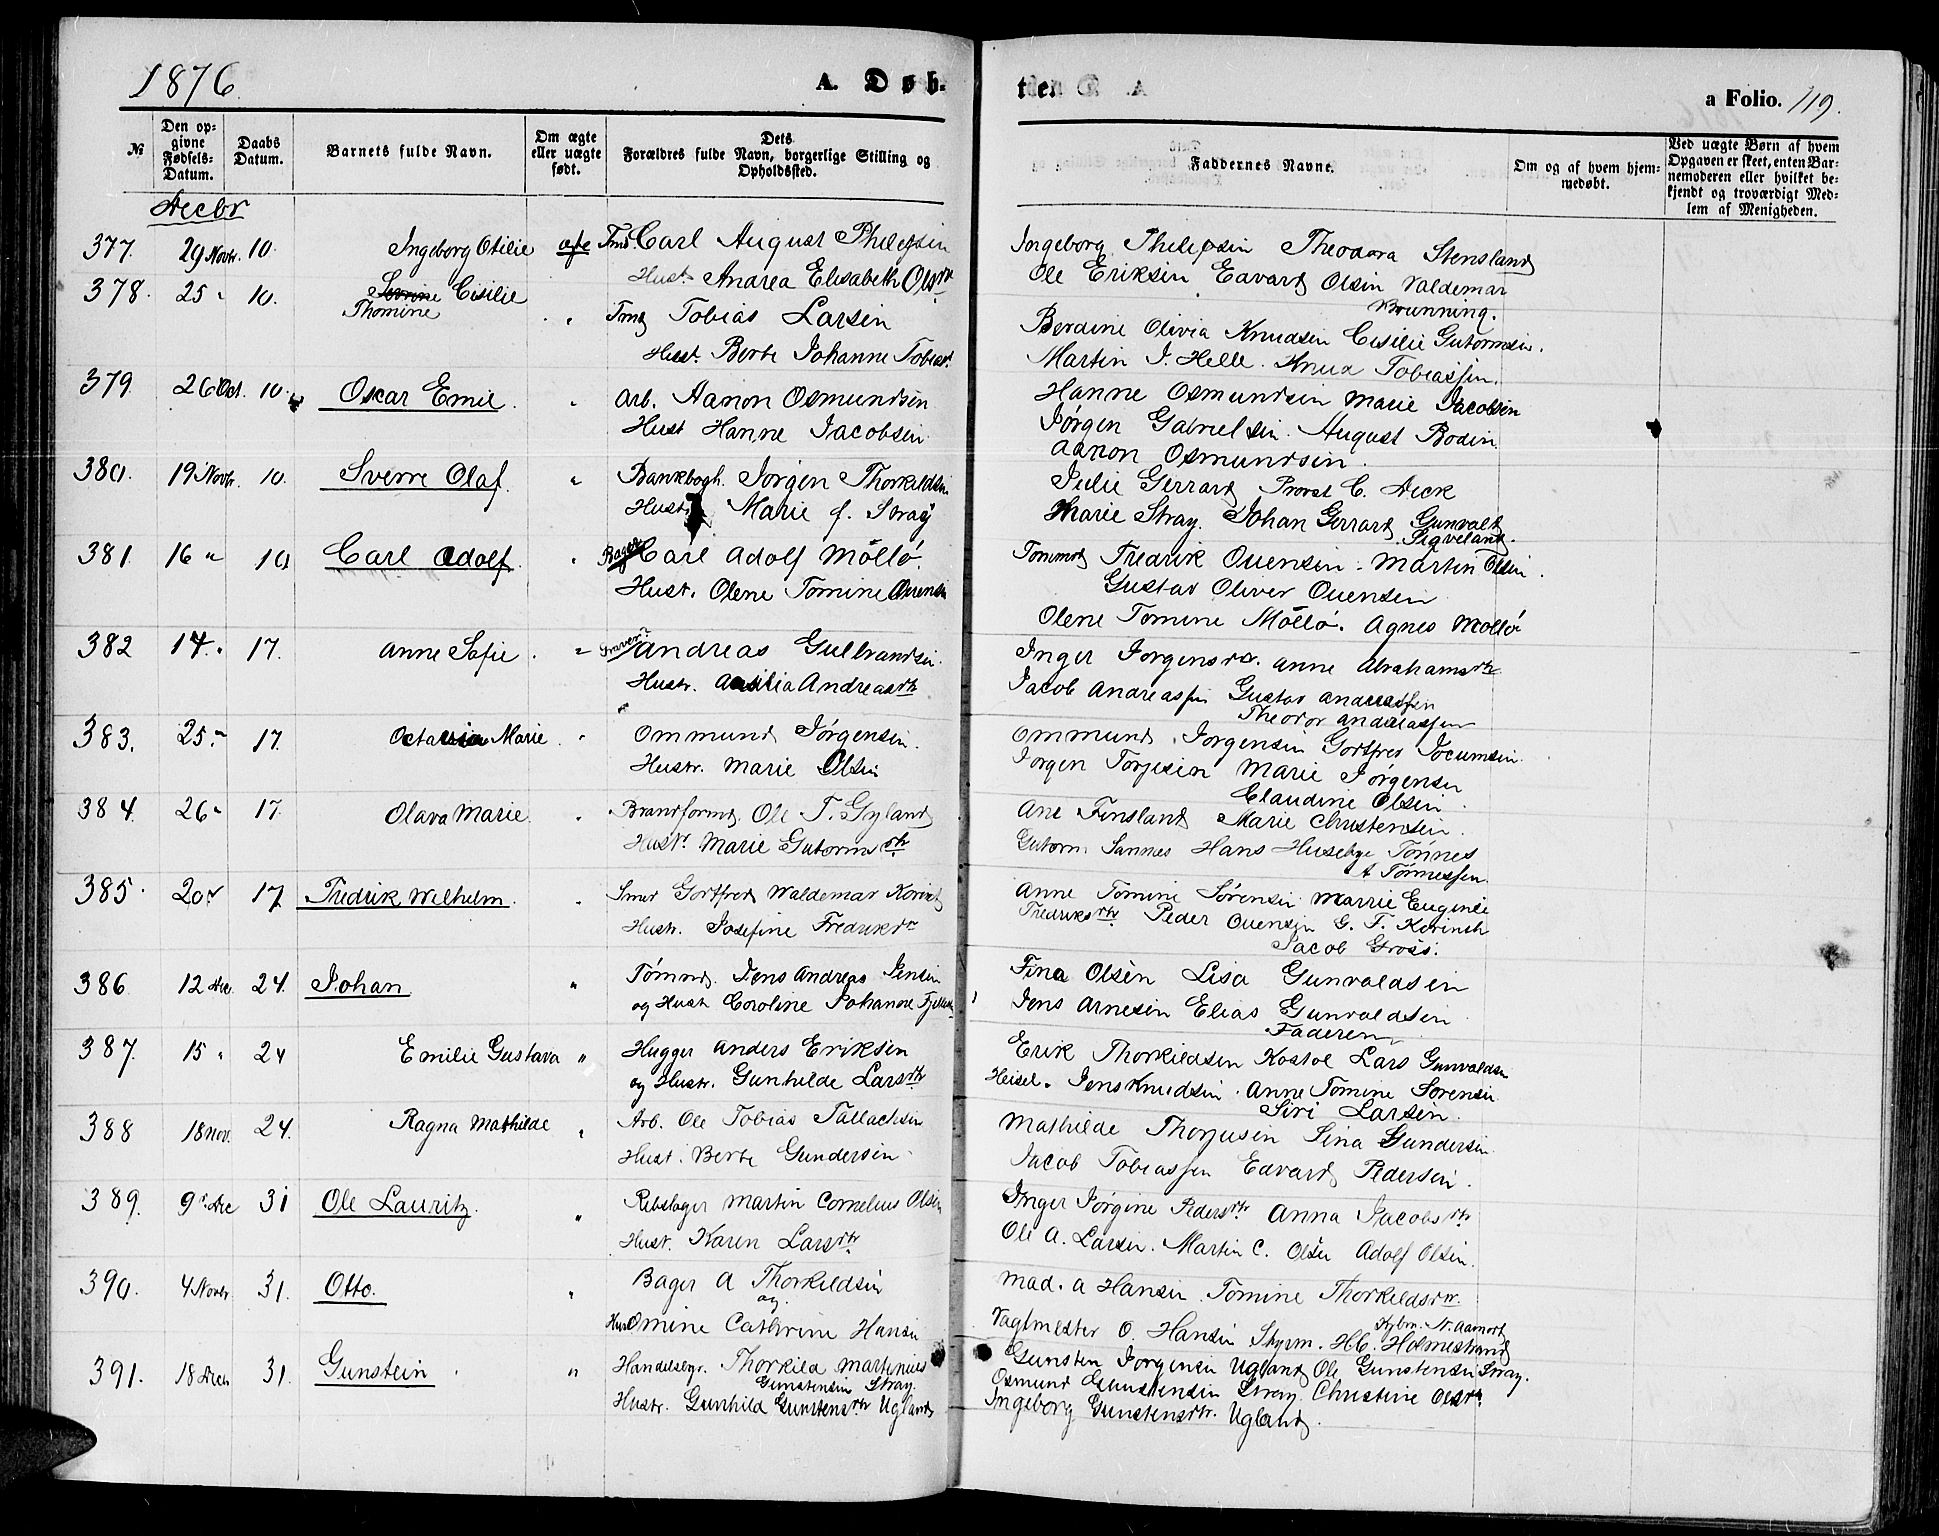 1876
A. Døb-
te.
a Folio. 119.
№
Den opgivne Fødsels-Datum.
Daabs Datum.
Barnets fulde Navn.
Om ægte eller uægte født.
Dets Forældres fulde Navn, borgerlige Stilling og Opholdssted.
Faddernes Navne.
Om og af hvem hjemmedøbt.
Ved uægte Børn af hvem Opgaven er skeet, enten Barnemoderen eller hvilket bekjendt og troværdigt Medlem af Menigheden.
Decbr
377. 29 Novbr. 10. Ingeborg Otilie Carl August Philipsen
Hust. Andrea Elisabeth Olsdtr
Ingeborg Philipsen Theodora Stensland
Ole Eriksen Edvard Olsen Valdemar
Brunning.
378. 25 " 10. Severine Cisilie
Thomine " Tømd Tobias Larsen
Hust. Berte Johanne Tobias.
Berdine Olivia Knudsen Cisilie Gutormsen.
Martin J. Helle. Knud Tobiassen.
379. 26 Oct. 10. Oscar Emil. " Arb. Aanon Osmundsen
Hust Hanne Jacobsen
Hanne Osmundsen Marie Jacobsen
Jørgen Gabrielsen. August Bodin
Aanon Osmundsen.
380. 19 Novbr. 10. Sverre Olaf. " Bankbogh. Jørgen Thorkildsen
Hust. Marie f. Stray
Julie Gerrard Provst C. Deck
Marie Stray. Johan Gerrard Gunvald
Sigveland.
381. 16 " 10 Carl Adolf. " Bager Carl Adolf Møllø.
Hust. Olene Tomine Ouensen
Tømmd Fredrik Ouensen. Martin Olsen.
Gustav Oliver Ouensen
Olene Tomine Møllø. Agnes Møllø
382 14. " 17. Anne Sofie. " Andreas Gulbrandsen.
Hustr. Andreasdtr
Inger Jorgensdtr. Anne Abrahamsdtr
Jacob Andreassen Gustav Andreassen
Theodor Andreassen
383. 25. " 17. Octavia Marie. " Ommund Jørgensen.
Hustr. Marie Olsen
Ommund Jørgensen Gottfred Jocumsen.
Jorgen Torjusen Marie Jørgensen
Claudine Olsen.
384. 26 " 17. Olava Marie. " Brandformd. Ole T. Gyland
Hustr Marie Gutormsdtr
Ane Finsland Marie Christensen.
Gutorm Sannes Hans Husebye Tønnes
A Tønnessen.
385. 20 " 17 Fredrik Wilhelm. " Smed Gottfred Waldemar
Hustr. Josefine Fredriksdr
Anne Tomine Sørensen Marrie Eugenie
Fredriksdtr Peder Ouensen G. F.
Jacob Gross.
386. 12 Dec. 24. Johan " Tømmd. Jens Andreas Jensen
og Hust Caroline Johanne
Fina Olsen Lisa Gunvaldsen
Jens Arnesen Elias Gunvaldsen
Faderen
387. 15 " 24 Emilie Gustava " Hugger Anders Eriksen
og Hustr. Gunhilde Larsdtr
Erik Thorkildsen Kostøl Lars Gunvaldsen
Heisel. Jens Knudsen. Anne Tomine Sørensen
Siri Larsen.
388 18 Nov. 24. Ragna Mathilde " Arb. Ole Tobias Tallachsen
Hust. Berte Gundersen.
Mathilde Thorjusen Sina Gundersen
Jacob Tobiassen Edvard Pedersen.
389. 9 Dec 31 Ole Lauritz. " Rebslager Martin Cornelius Olsen
Hust. Karen Larsdtr
Inger Jørgine Pedersdtr Anna Jacobsdtr
Ole A. Larsen. Martin C. Olsen Adolf Olsen.
390. 4 Novbr 31. Otto. " Bager A Thorkildsen
og
Hust Omine Cathrine Hansen
Mad. A Hansen Tomine Thorkildsdtr.
Vagtmester O. Hansen Skyrm. Holmestrand
391. 18 Decbr 31. Gunstein. " Handelsbgr. Thorkild Martinius
Gunstensen Stray.
Hustr. Gunhild Gunstensdtr Ugland
Gunsten Jørgensen Ugland Ole Gunstensen Stray.
Osmund Gunstensen Stray Christine Olsdtr
Ingeborg Gunstensdtr. Ugland.